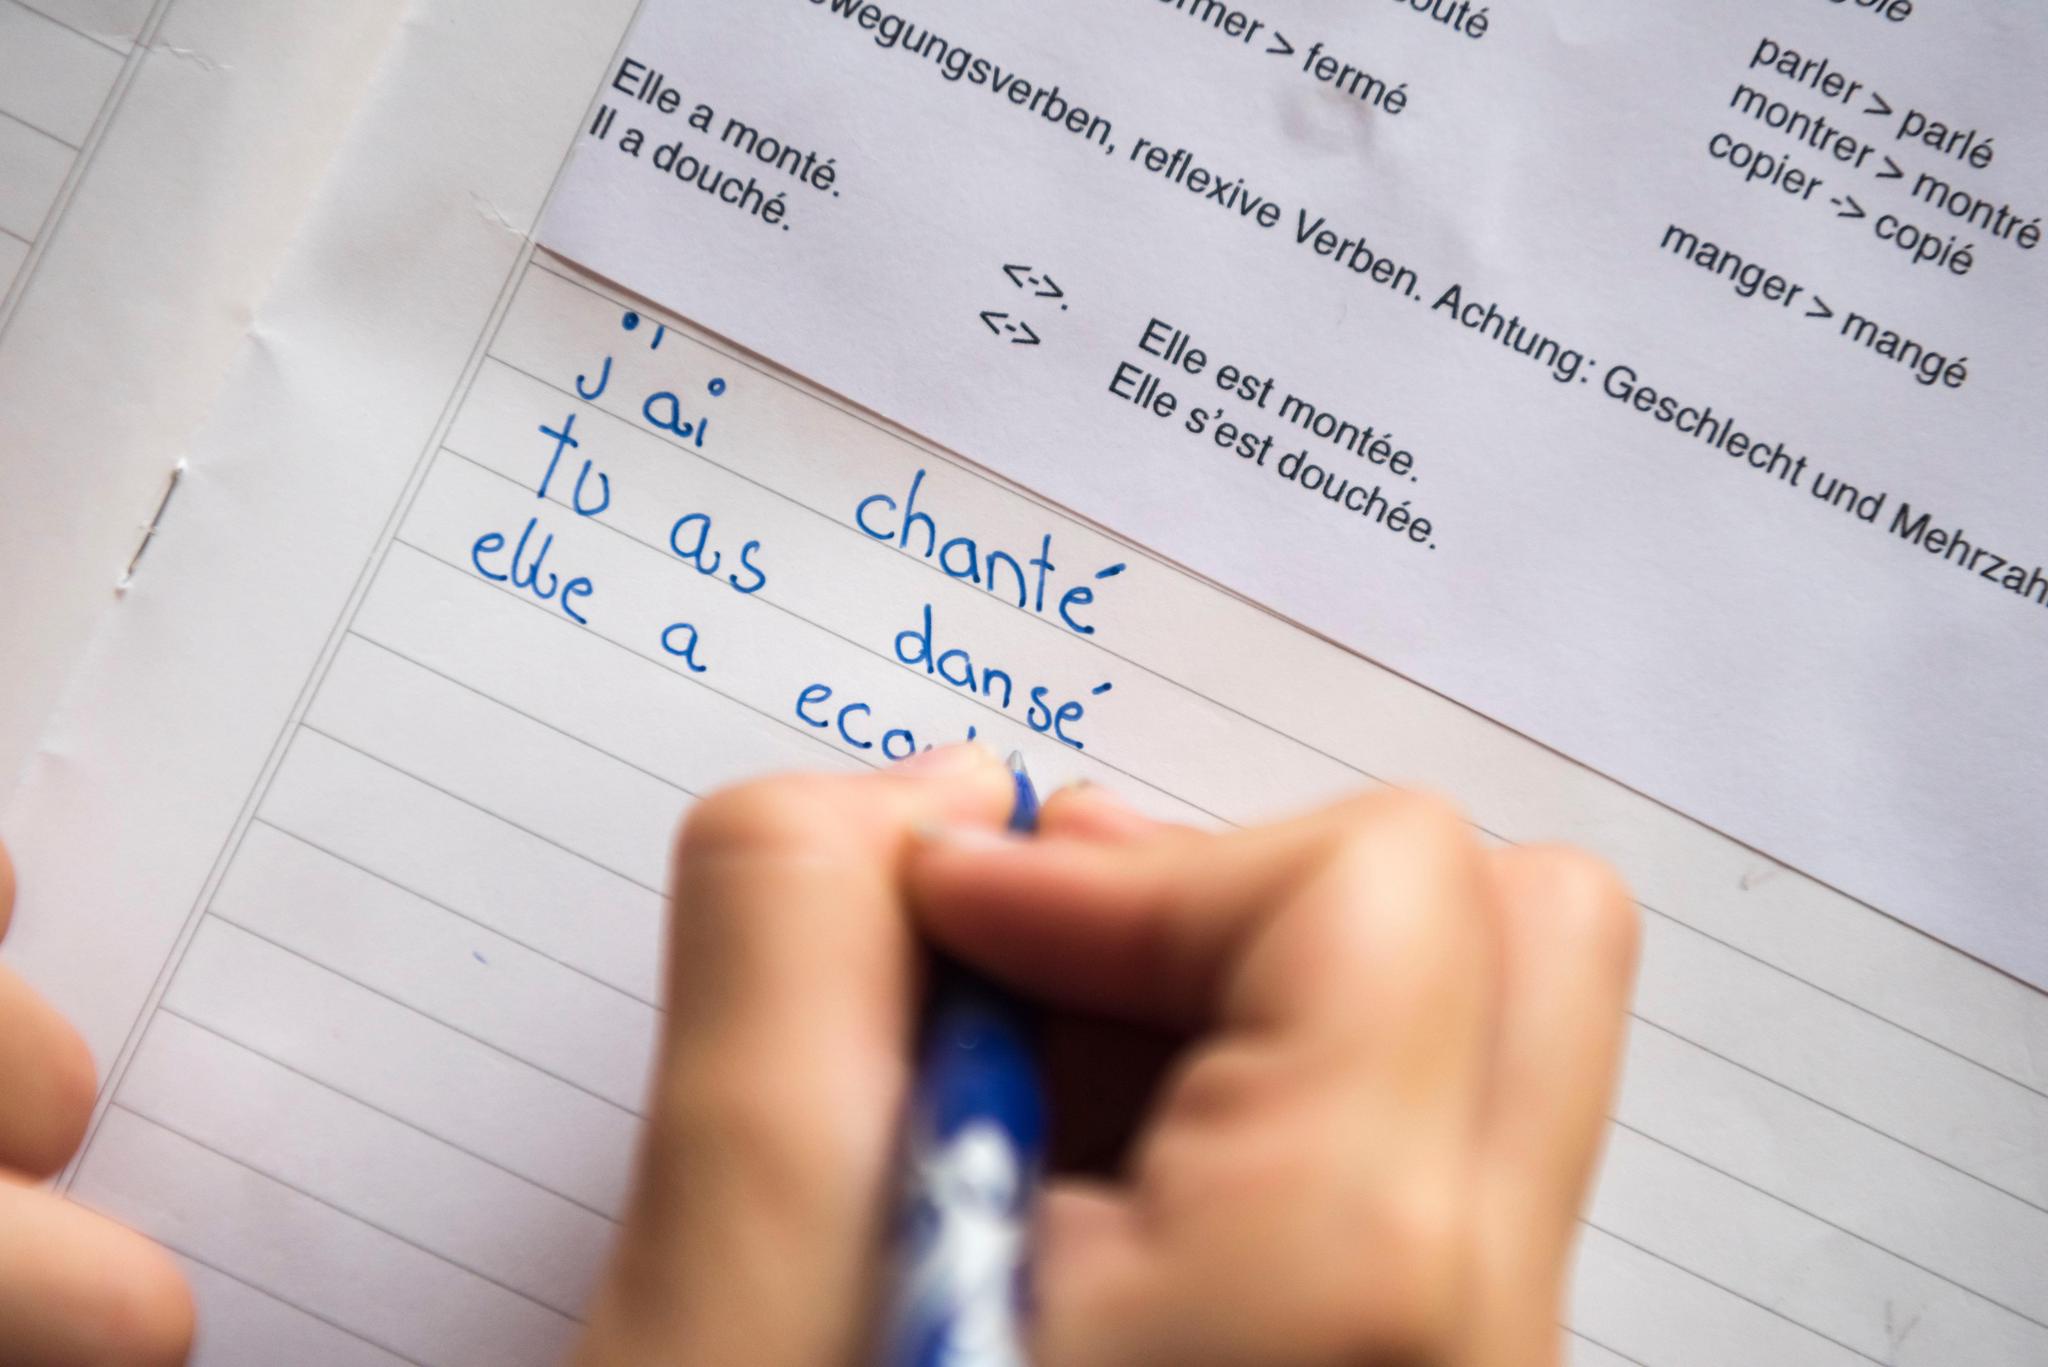 fermé
parler > parlé
montrer > montré
copier -> copié
manger > mangé
reflexive Verben. Achtung: Geschlecht und
Elle a monté. <->. Elle est montée.
Il a douché. <-> Elle s'est douchée.
j'ai chanté
tu as dansé
elle a